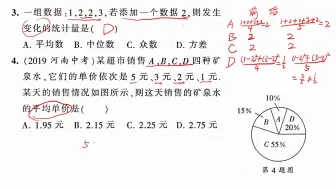 3. 一组数据:1,2,2,3,若添加一个数据2,则发生
变化的统计量是( D )
A. 平均数 B. 中位数 C. 众数 D. 方差
4. (2019 河南中考)某超市销售A,B,C,D四种矿
泉水,它们的单价依次是5元,3元,2元,1元.
某天的销售情况如图所示,则这天销售的矿泉水
的平均单价是( )
A. 1.95 元 B. 2.15 元 C. 2.25 元 D. 2.75 元
5
前 后
A
B 2 2
C 2 2
D
10%
15%
B
A
D
20%
C 55%
第 4 题图